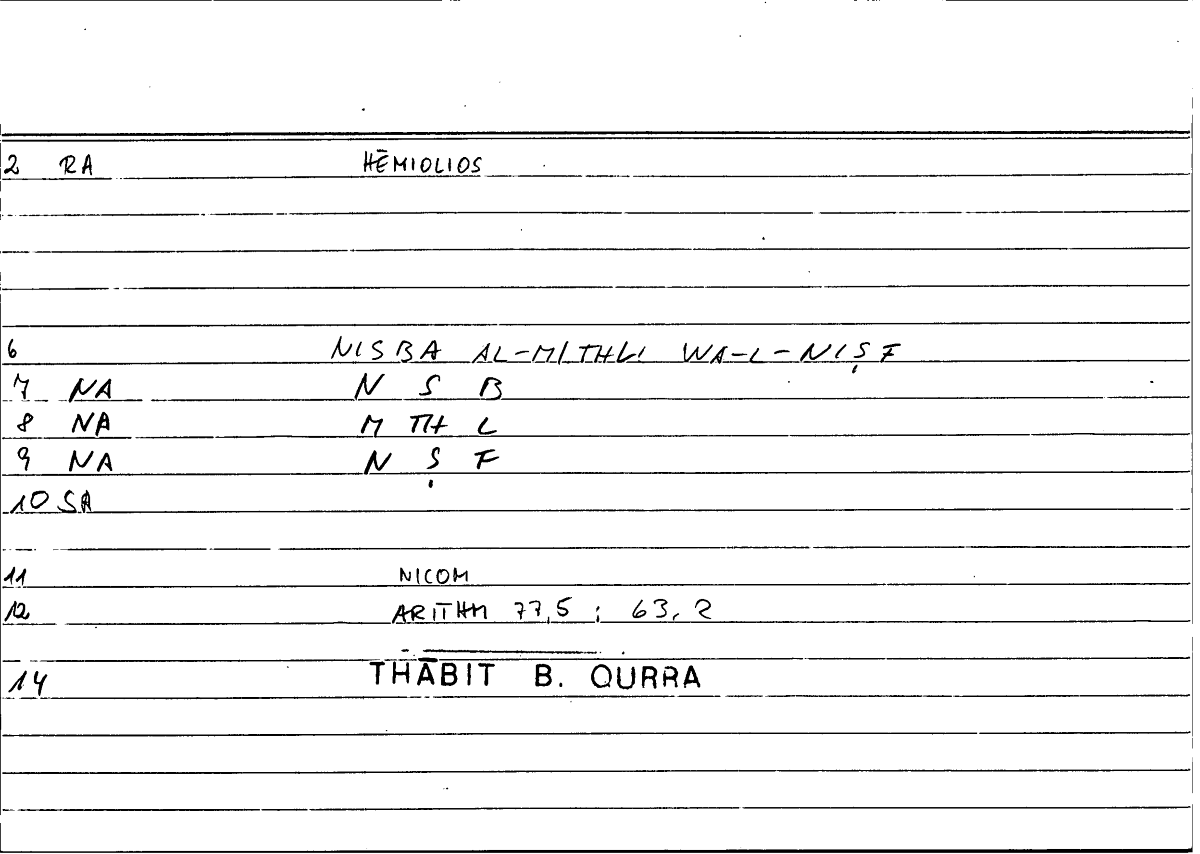 2 RA HĒMIOLIOS
6 NISBA AL-MITHLI WA-L-NIṢF
7 NA N S B
8 NA M TH L
9 NA N Ṣ F
10 SA
11 NICOM
12 ARITHM 77,5 ; 63,2
14 THĀBIT B. QURRA